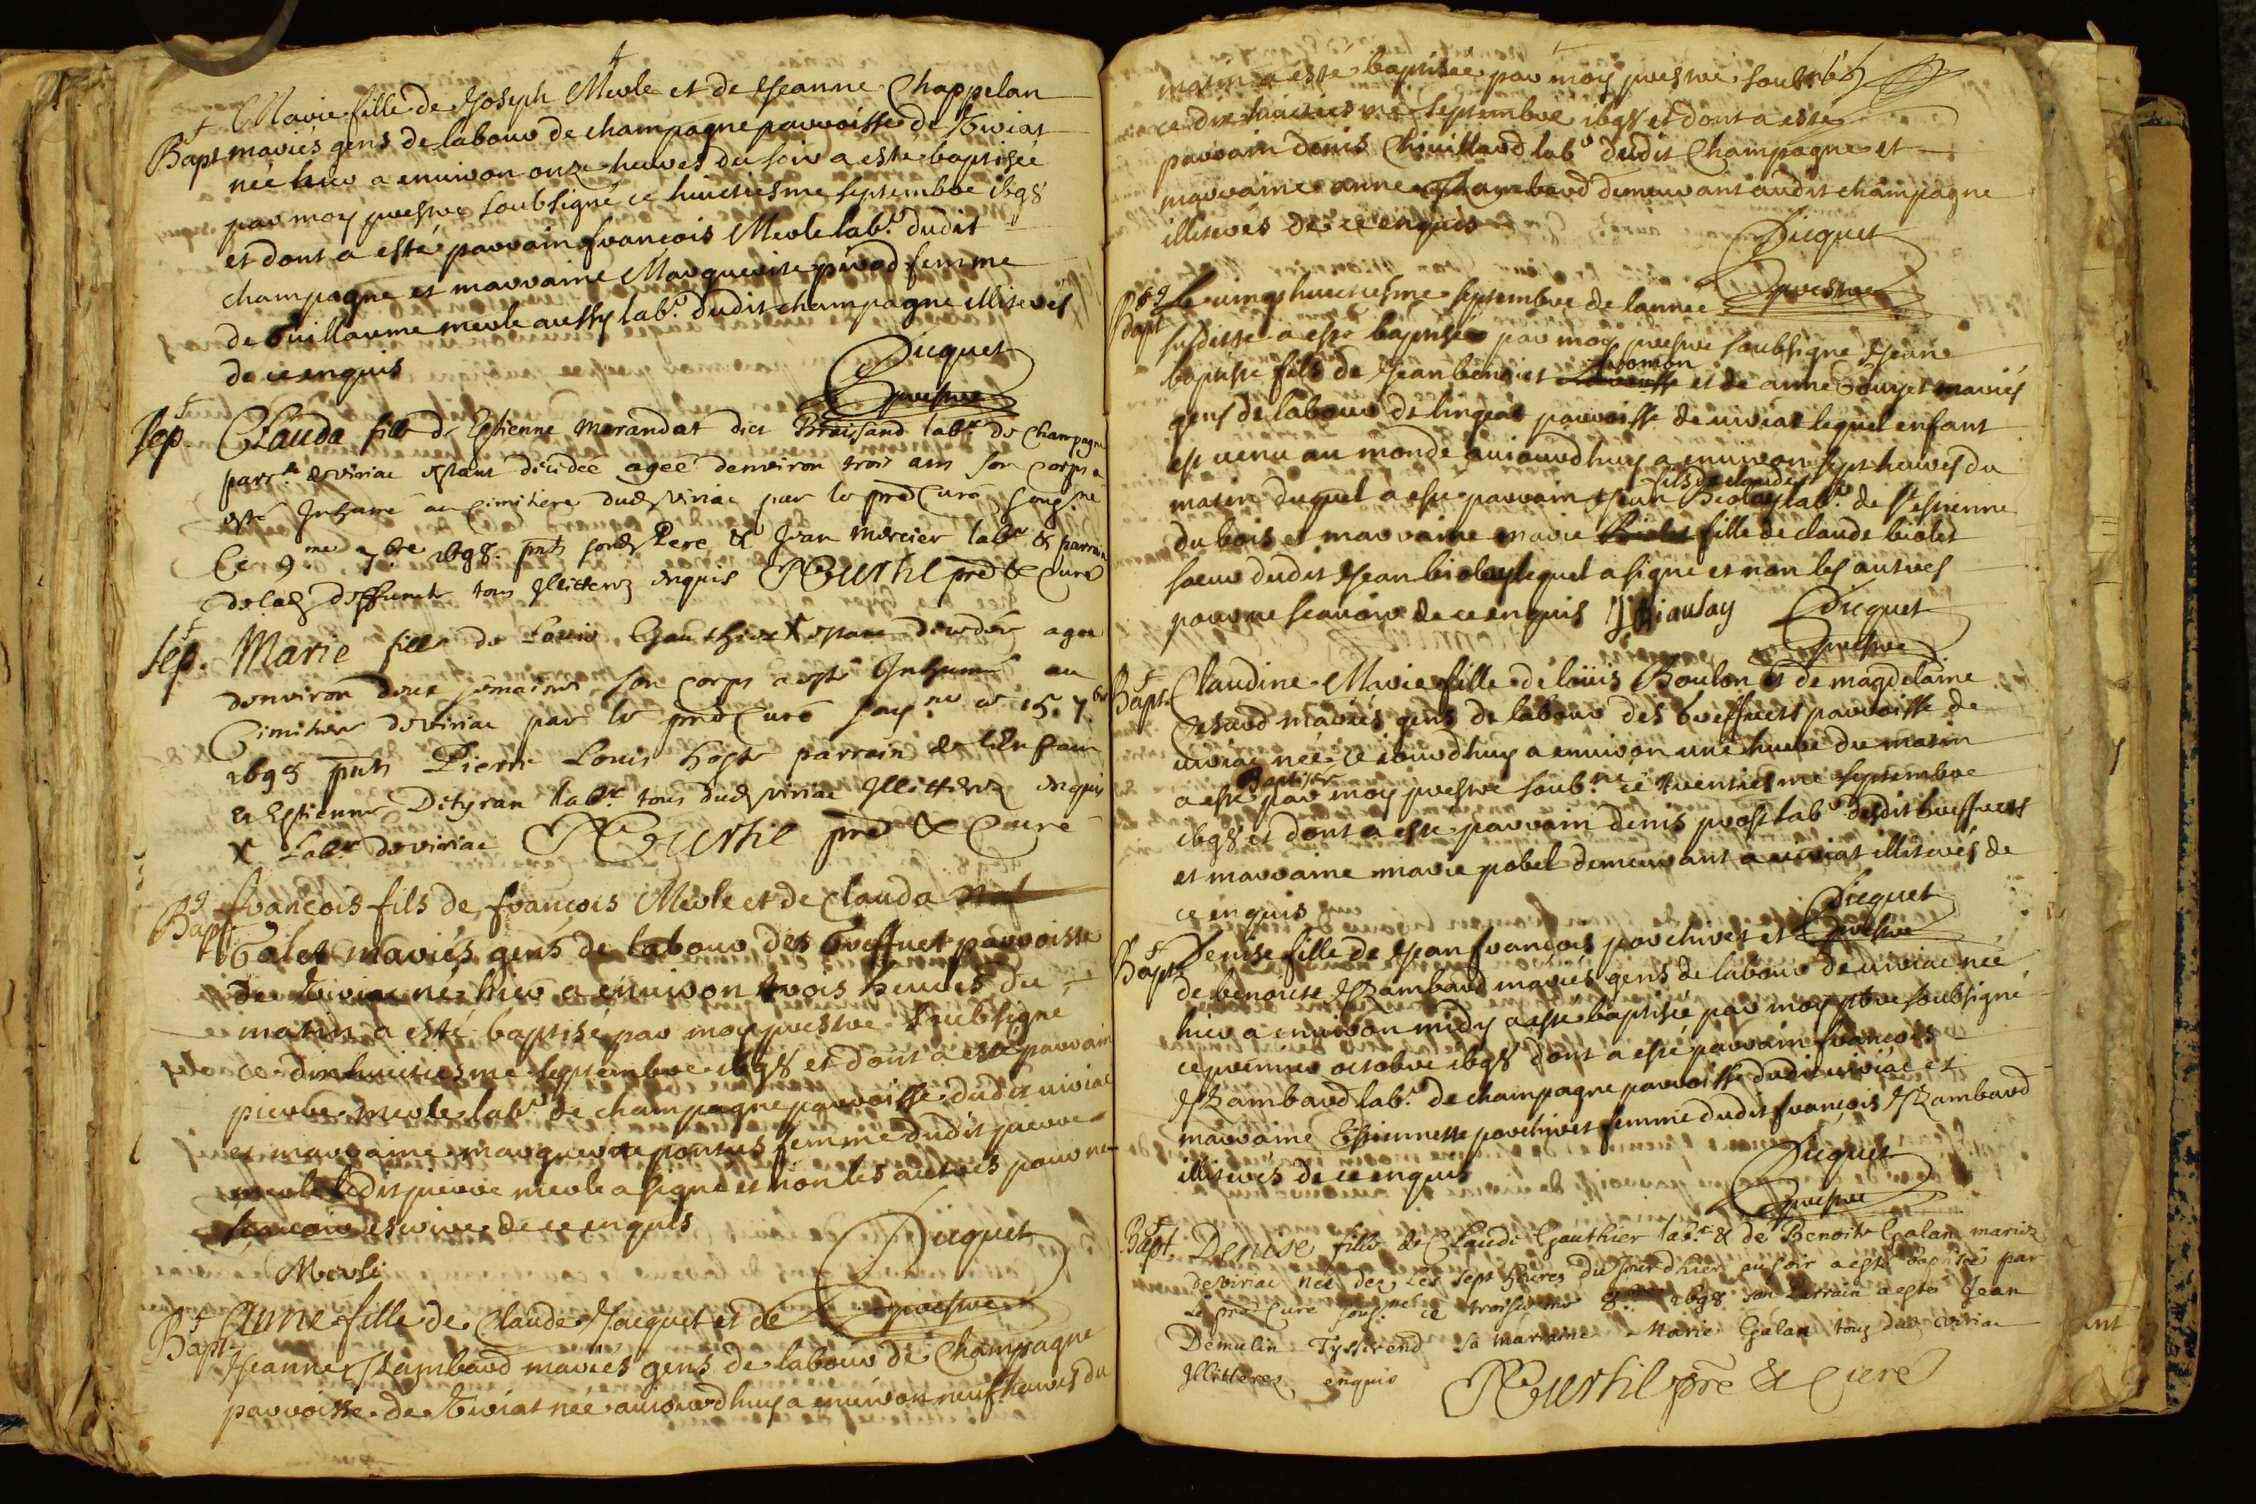 Marie fille de Joseph Merle et de Jeanne Chappelan
Bapt mariés gens de labour de champagne parroisse de Viriat
née hier a environ onze heures du soir a esté baptisée
par moy prestre soubsigné ce huictiesme septembre 1698
et dont a esté parrain francois Merle labr dudit
champagne et marraine Marguerite pirod femme
de Guillaume merle aussy labr dudit champagne illiterés
de ce enquis
Dicquet
prestre
Sep. Clauda fille de Estienne Morandat dict Braissand labr de Champagne
parr. de viriac estant décédée agée denviron trois ans son corps a
esté Inhumé au Cimitiere dud viriac par le pred Curé soug.né
Ce 9me 7bre 1698. pnts sond Pere & Jean Mercier labr & parrain
de lad deffuncte tous Illiterez enquis Curtil pre & Curé
Sep. Marie fille de Louis Gauthier X estant decedée agée
denviron deux semaines son corps a esté Inhumé au
Cimitiere de viriac par le pred Curé soug.né ce 15. 7.bre
1698 pnts Pierre Louis hoste parrain de lenfant
& Estienne Dityran labr tous dud viriac Illitterez enquis
X Labr de viriac Curtil pre & Curé
Bapt françois fils de françois Merle et de Clauda
Galet mariés gens de labour des Greffiet parroisse
de Viriac né hier a environ trois heures du
matin a esté baptisé par moy prestre soubsigné
ce dixhuictiesme septembre 1698 et dont a esté parrain
pierre merle labr de champagne parroisse dudit viriac
et marraine marguerite pontus femme dudit pierre
merle ledit pierre merle a signé et non les autres pour ne
scavoir escrire de ce enquis
Merle
Dicquet
prestre
Bapt Anne fille de Claude Jacquet et de
Jeanne Jambard mariés gens de labour de Champagne
parroisse de Viriat née aujourdhuy a environ neuf heures du
matin a esté baptisée par moy prestre soubsné
ce dix huictiesme septembre 1698 et dont a esté
parrain denis Chivillard labr dudit Champagne et
marraine anne Jambard demeurant audit champagne
illiterés de ce enquis
Dicquet
prestre
Bapt Le vingt huictiesme septembre de lannée
susditte a esté baptisé par moy prestre soubsigné Jean
baptiste fils de Jean benoict et de anne Goujet mariés
gens de labour de lingeat parroisse de viriat lequel enfant
est venu au monde aujourdhuy a environ sept heures du
fils de claude
matin duquel a esté parrain Jean Biolay labr de st estienne
du bois et marraine marie fille de claude biolet
soeur dudit Jean biolay lequel a signé et non les autres
pour ne scavoir de ce enquis J Biaulay Dicquet
prestre
Bapt. Claudine Marie fille de louis Boulon et de magdelaine
mariés gens de labour des Greffiets parroisse de
viriac née ce jourdhuy a environ une heure du matin
Baptisée
a esté par moy prestre soub.né ce trentiesme septembre
1698 et dont a esté parrain denis prost labr desdit Greffiets
et marraine marie pobel demeurant a viriat illiterés de
ce enquis
Dicquet
prestre
Bapt Denise fille de Jean françois porchiret et
de benoiste Jambard mariés gens de labour de viriac née
hier a environ midy a esté baptisée par moy pbre soubsigné
ce premier octobre 1698 dont a esté parrain françois
Jambard labr de champagne parroisse dudit viriac et
marraine Estiennette porchiret femme dudit françois Jambard
illiterés de ce enquis
Dicquet
prestre
Bapt. Denise fille de Claude Gauthier labr & de Benoite Galan mariez
de viriac née dez Les sept heures du jour dhier au soir a esté baptisée par
Le pre Curé soug.né ce troisieme 8bre 1698 son Parrain a esté Jean
Demulin Tysserend sa marraine Marie Galan tous dud viriac
Illitterez enquis Curtil pre & Curé